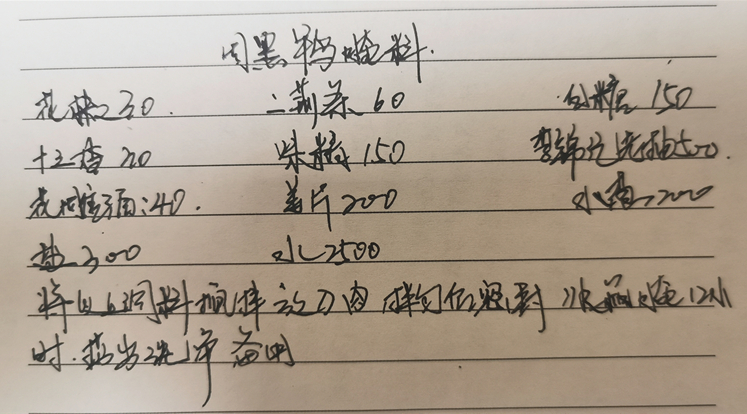 周黑鸭腌料.
花椒30. 二荆条60 白糖150
十三香20 味精150 李锦记生抽500.
花雕酒:40. 姜片200 小香200
盐300 水2500
将以上调料搅拌放入肉拌匀保 冰箱腌12小
时.捞出洗净备用